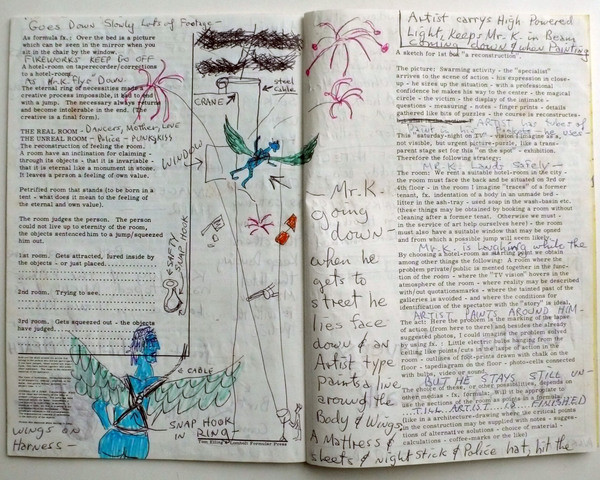 Goes Down Slowly Lots of Footage-
As formula fx.: Over the bed is a picture
which can be seen in the mirror when you
sit in the chair by the window.
FIREWORKS KEEP GO OFF
A hotel-room on taperecorder/corrections
to a hotel-room.
As Mr.K. Flys Down.
The eternal ring of necessities made a
creative process impossible, it had to end
with a jump. The necessary always returns
and become intolerable in the end. (The
creative is a final form).
THE REAL ROOM - DANCERS, MOTHER, LOVE
THE UNREAL ROOM - POLICE - PUNKS, KISS
The reconstruction of feeling the room.
A room have an inclination for claiming
through its objects - that it is invariable -
that it is eternal like a monument in stone.
It leaves a person a feeling of own value.
Petrified room that stands (to be born in a
tent - what does it mean to the feeling of
the eternal and own value).
The room judges the person. The person
could not live up to eternity of the room,
the objects sentenced him to a jump/squeezed
him out.
1st room. Gets attracted, lured inside by
the objects - or just placed
2nd room. Trying to see
3rd room. Gets squeezed out - the objects
have judged
WINGS ON
HARNESS-
CABLE
SNAP HOOK
IN RING
SAFETY
SNAP HOOK
CRANE
steel
Cable
WINDOW
Artist carrys High Powered
Light, keep Mr. K. in Beam
coming down & when Painting
A sketch for 1st box "a reconstruction".
The picture: Swarming activity - the "specialist"
arrives to the scene of action - his expression in close-
up - he sizes up the situation - with a professional
confidence he makes his way to the center - the magical
circle - the victim - the display of the intimate -
questions - measuring - notes - finger prints - details
gathered like bits of puzzles - the course is reconstructed
This "saturday-night on TV" - vision I imagine as a
not visible, but urgent picture-puzzle, like a trans-
parent stage set for this "on the spot" - exhibition.
Therefore the following strategy:
Mr.K. Lands Safely-
The room: We rent a suitable hotel-room in the city -
the room must face the back and be situated on 3rd or
4th floor - in the room I imagine "traces" of a former
tenant, fx. indentation of a body in an unmade bed -
litter in the ash-tray - used soap in the wash-basin etc.
(these things may be obtained by booking a room without
cleaning after a former tenant. Otherwise we must -
in the service of art help ourselves here) - the room
must also have a suitable window that may be opened
and from which a possible jump will seem likely.
Mr.K. is laughing while the
By choosing a hotel-room as starting point we obtain
among other things the following: A room where the
problem private/public is mented together in the func-
tion of the room - where the "TV vision" hovers in the
atmosphere of the room - where reality may be described
without quotationmarks - where the tainted past of the
galleries is avoided - and where the conditions for
identification of the spectator with the "story" is ideal.
ARTIST PAINTS AROUND HIM-
The act: Here the problem is the marking of the lapse
of action (from here to there) and besides the already
suggested photos, I could imagine the problem solved
by using fx.: Little electric bulbs hanging from the
ceiling like points/cuts in the lapse of action in the
room - outlines of foot-prints drawn with chalk on the
floor - tapediagram on the floor - photo-cells connected
with bulbs, video or sound.
BUT HE STAYS STILL UN-
The choice of these, or other possibilities, depends on
other medias - fx. formula: Will it be appropriate to
use the sections of the room as points in a formula
TILL ARTIST IS FINISHED
(like in a architecture-drawing where the critical points
in the construction may be supplied with notes - sugges-
tions of alternative solutions - choice of material -
calculations - coffee-marks or the like)
- Mr.K.
going
down -
when he
gets to
street he
lies face
down & an
Artist type
paints a line
around the
Body & Wings,
A Mattress &
sheets & night Stick & Police hat, hit the